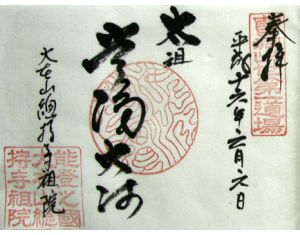 奉拝
道場
平成十六年 月 日
太祖
常済大師
大本山總持寺祖院
能登之國
大本山總
持寺祖院